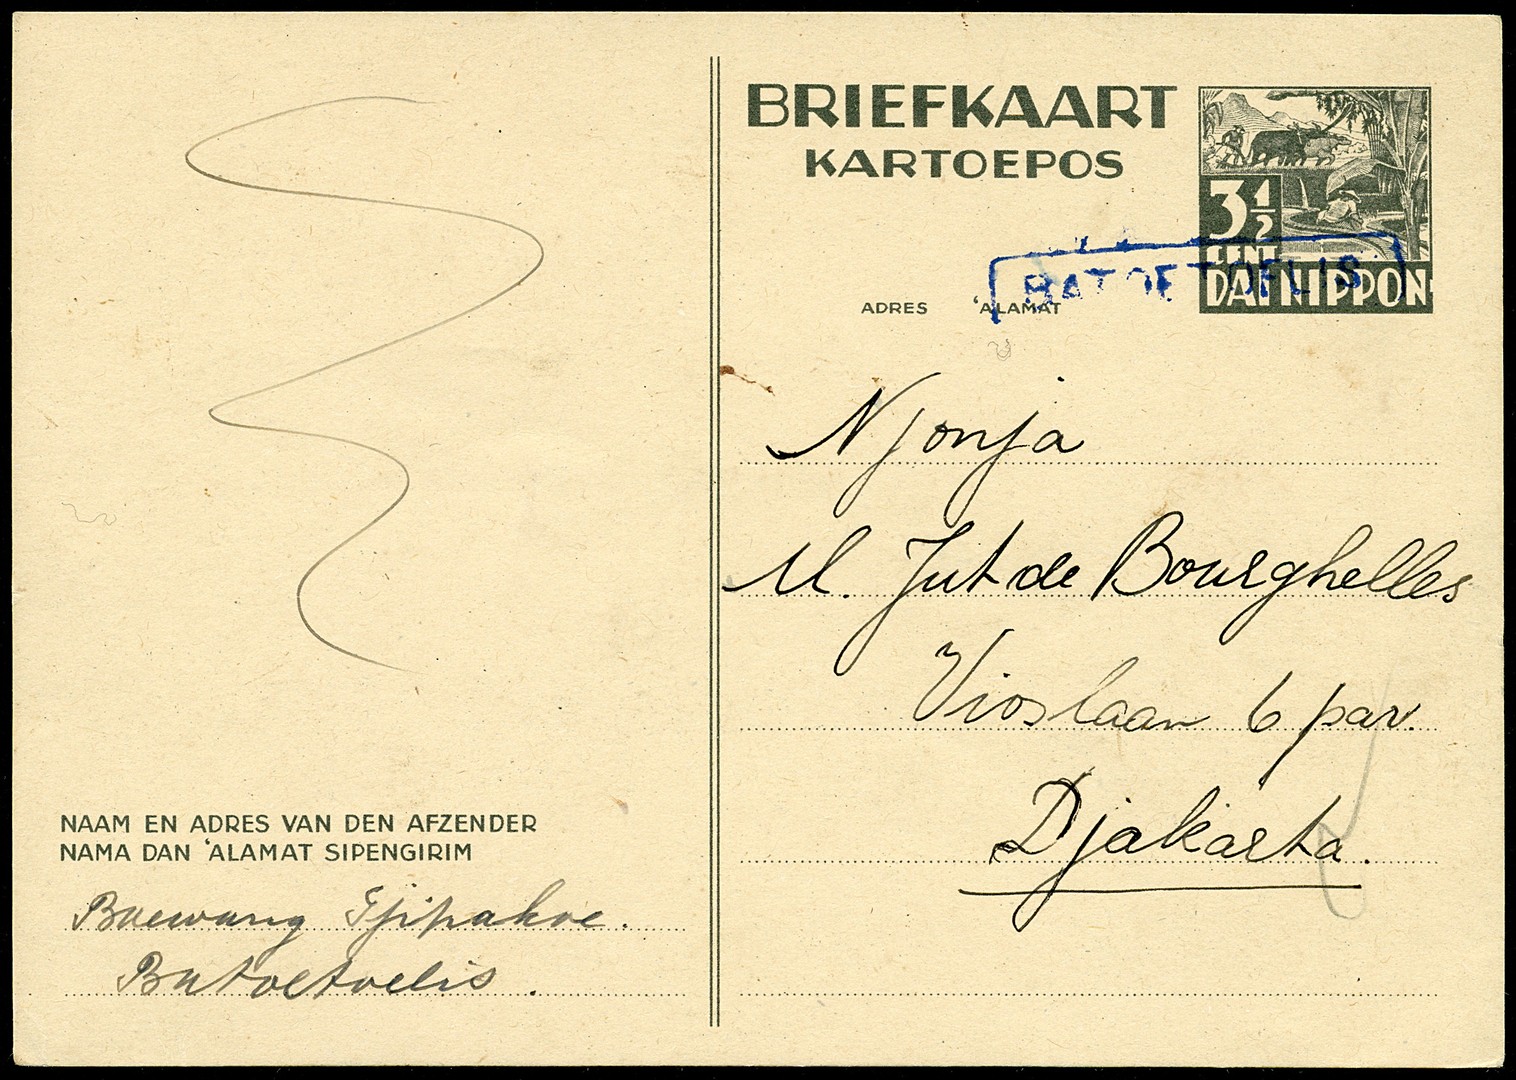 BRIEFKAART
KARTOEPOS
3 1/2
CENT
DAI NIPPON
BATOETOELIS
ADRES 'ALAMAT
Njonja
M. Jut de Bourghelles
Vioslaan 6 pav.
Djakarta.
NAAM EN ADRES VAN DEN AFZENDER
NAMA DAN 'ALAMAT SIPENGIRIM
Boewang Tjipakoe.
Batoetoelis.